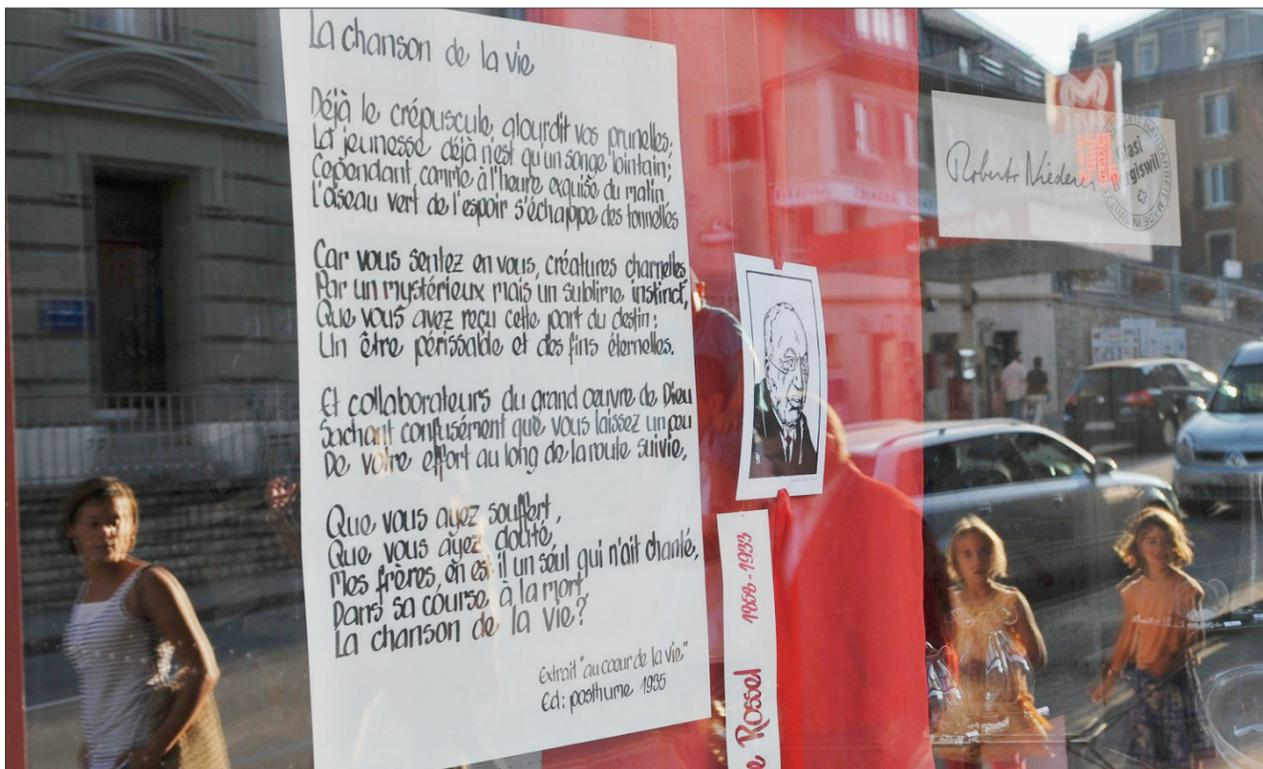 La chanson de la vie
Déjà le crépuscule, alourdit vos prunelles;
La jeunesse déjà n'est qu'un songe lointain;
Cependant comme à l'heure exquise du matin
L'oiseau vert de l'espoir s'échappe des tonnelles
Car vous sentez en vous, créatures charnelles
Par un mystérieux mais un sublime instinct,
Que vous avez reçu cette part du destin:
Un être périssable et des fins éternelles.
Et collaborateurs du grand œuvre de Dieu
Sachant confusément que vous laissez un peu
De votre effort au long de la route suivie,
Que vous ayez souffert,
Que vous ayez douté,
Mes frères, en est-il un seul qui n'ait chanté,
Dans sa course à la mort
La chanson de la vie?
Extrait "au coeur de la vie"
Ed: posthume 1935
e Rossel 1858-1933
Roberto Niederer
Glasi
Hergiswil
HANDARBEIT MADE IN SWITZ
M